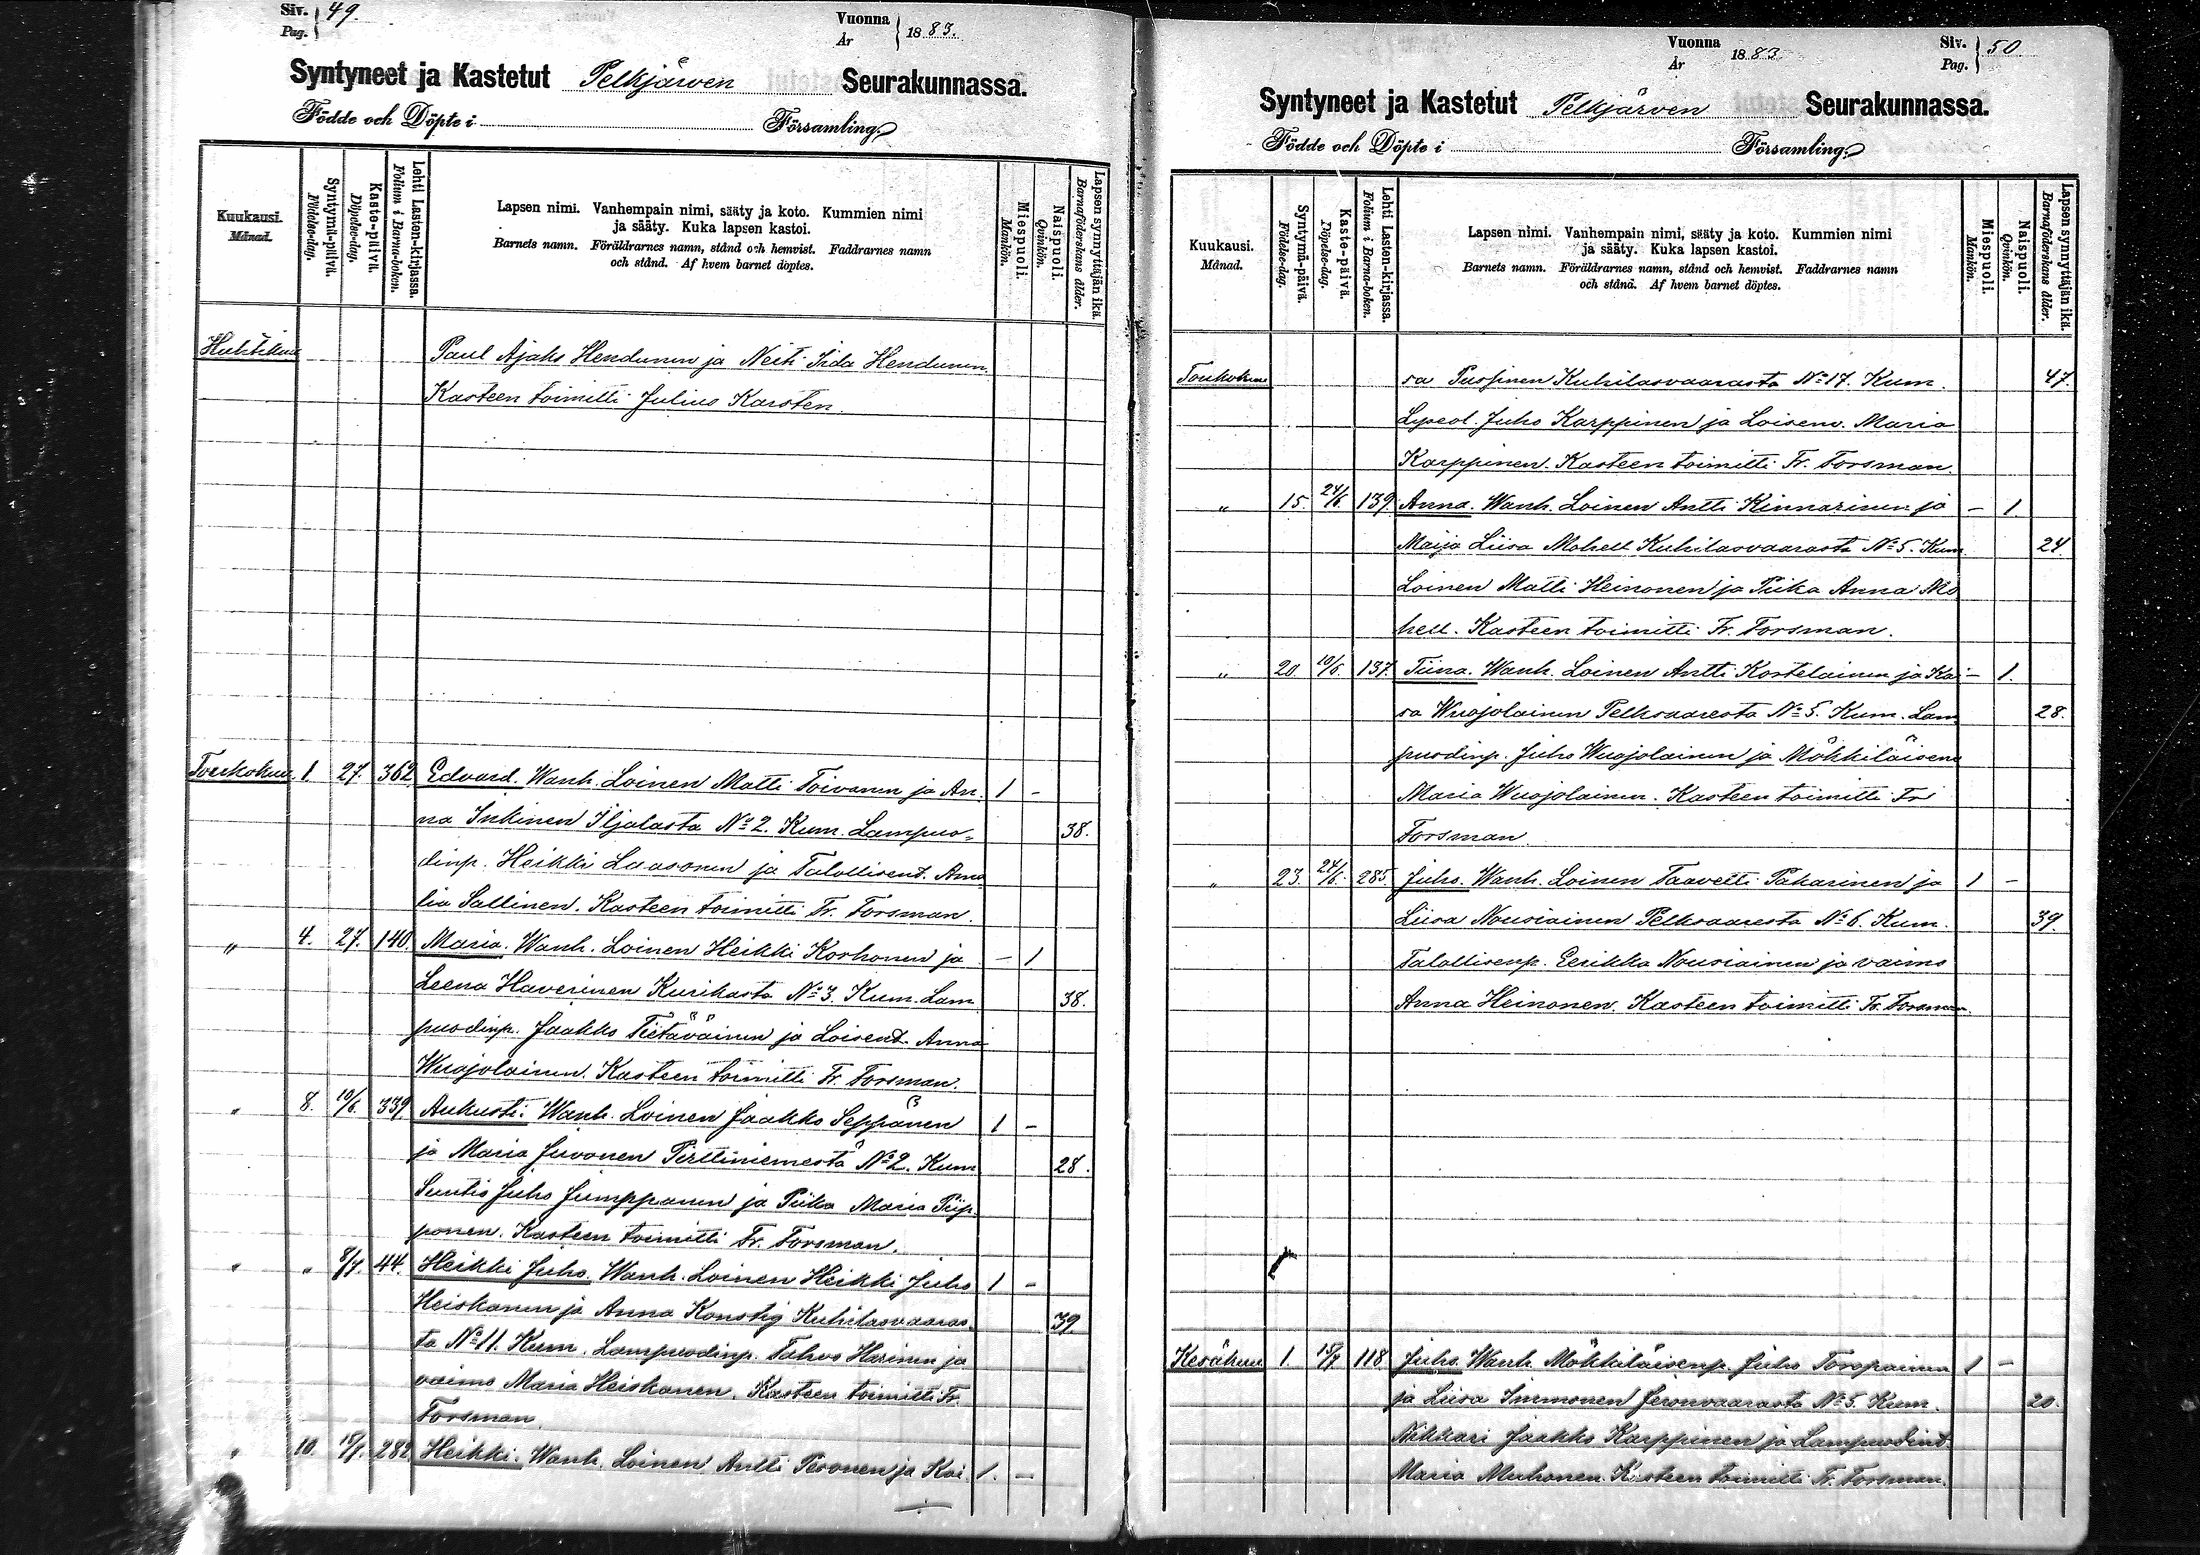 Siv. Pag. 49.
Vuonna År 1883.
Syntyneet ja Kastetut Pelkjärven Seurakunnassa.
Födde och Döpte i Församling.
Kuukausi. Månad.
Syntymä-päivä. Födelse-dag.
Kaste-päivä. Döpelse-dag.
Lehti Lasten-kirjassa. Folium i Barna-boken.
Lapsen nimi. Vanhempain nimi, sääty ja koto. Kummien nimi
ja sääty. Kuka lapsen kastoi.
Barnets namn. Föräldrarnes namn, stånd och hemvist. Faddrarnes namn
och stånd. Af hvem barnet döptes.
Miespuoli. Mankön.
Naispuoli. Qvinkön.
Lapsen synnyttäjän ikä. Barnaföderskans ålder.
Huhtikuu Paul Ajaks Hendunen ja Neiti Iida Hendunen.
Kasteen toimitti Julius Karsten.
Toukokuu 1. 27. 362 Edvard. Wanh. Loinen Matti Toivanen ja An- 1 -
na Inkinen Iljalasta No 2. Kum. Lampuo- 38.
dinp. Heikki Laasonen ja Talollisent. Ama
lia Sallinen. Kasteen toimitti Fr. Forsman.
" 4. 27. 140. Maria. Wanh. Loinen Heikki Korhonen ja - 1
Leena Haverinen Kurikasta No 3. Kum. Lam 38.
puodinp. Jaakko Tietäväinen ja Loisent. Anna
Wuojolainen. Kasteen toimitti Fr. Forsman.
" 8. 10/6. 339 Aukusti. Wanh. Loinen Jaakko Seppänen 1 -
ja Maria Juvonen Pirttiniemestä No 2. Kum 28.
Suntio Juho Jumppanen ja Piika Maria Piip
ponen. Kasteen toimitti Fr. Forsman.
" " 8/7. 44. Heikki Juho. Wanh. Loinen Heikki Juho 1 -
Heiskanen ja Anna Konstig Kuhilasvaaras 39.
ta No 11. Kum. Lampuodinp. Tahvo Harinen ja
vaimo Maria Heiskanen. Kasteen toimitti Fr.
Forsman.
" 10. 282. Heikki. Wanh. Loinen Antti Pesonen ja Kai 1. -
Vuonna År 1883
Siv. Pag. 50
Syntyneet ja Kastetut Pelkjärven Seurakunnassa.
Födde och Döpte i Församling.
Kuukausi. Månad.
Syntymä-päivä. Födelse-dag.
Kaste-päivä. Döpelse-dag.
Lehti Lasten-kirjassa. Folium i Barna-boken.
Lapsen nimi. Vanhempain nimi, sääty ja koto. Kummien nimi
ja sääty. Kuka lapsen kastoi.
Barnets namn. Föräldrarnes namn, stånd och hemvist. Faddrarnes namn
och stånd. Af hvem barnet döptes.
Miespuoli. Mankön.
Naispuoli. Qvinkön.
Lapsen synnyttäjän ikä. Barnaföderskans ålder.
Toukokuu sa Kuhilasvaarasta No 17. Kum. 47.
Juho Karppinen ja Loisenv. Maria
Karppinen. Kasteen toimitti Fr. Forsman.
" 15. 24/6. 139. Anna. Wanh. Loinen Antti Kinnarinen ja - 1.
Maija Liisa Mohell Kuhilasvaarasta No 5. Kum 24.
Loinen Matti Heinonen ja Piika Anna Mo
hell. Kasteen toimitti Fr. Forsman.
" 20 10/6. 137. Tiina. Wanh. Loinen Antti Kostelainen ja Kai - 1.
sa Wuojolainen Pelksaaresta No 5. Kum. Lam 28.
puodinp. Juho Wuojolainen ja Mökkiläisenv
Maria Wuojolainen. Kasteen toimitti Fr
Forsman.
" 23. 24/6. 285. Juho. Wanh. Loinen Taavetti Pakarinen ja 1 -
Liisa Nousiainen Pelksaaresta No 6. Kum. 39
Talollisenp. Eerikka Nousiainen ja vaimo
Anna Heinonen. Kasteen toimitti Fr. Forsman.
Kesäkuu 1. 15/7 118 Juho. Wanh. Mökkiläisenp. Juho Toropainen 1 -
ja Liisa Immonen Jeronvaarasta No 5. Kum. 20.
Nikkari Jaakko Karppinen ja Lampuodint.
Maria Muhonen. Kasteen toimitti Fr. Forsman.